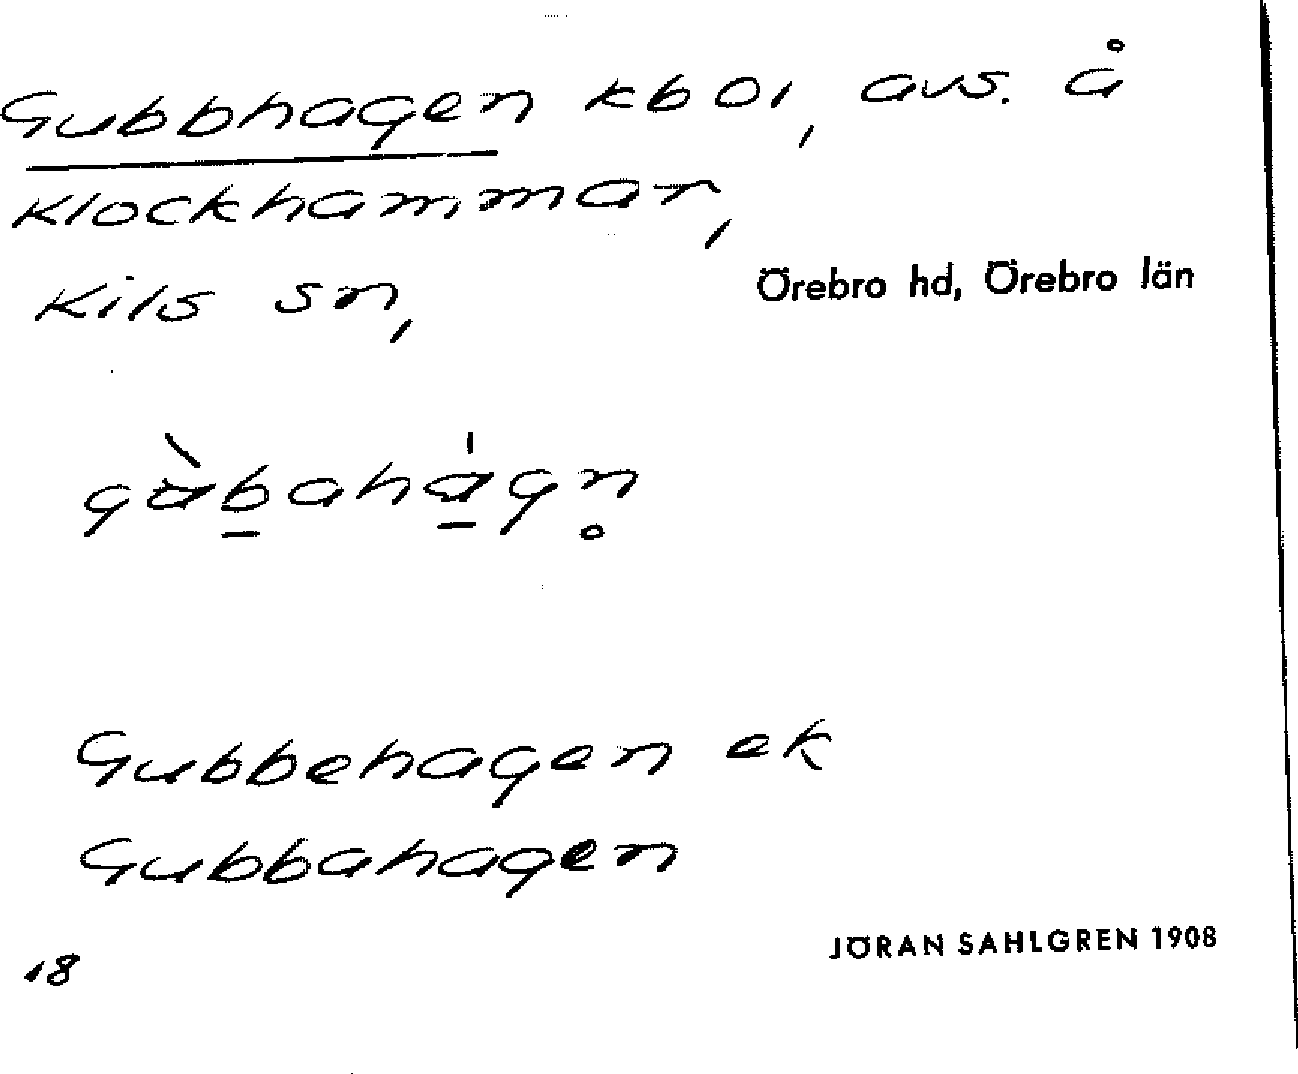 Gubbhagen kbol, avs. å
Klockhammar,
Kils sn,
Örebro hd, Örebro län
Gubbehagen ek
Gubbahagen
JÖRAN SAHLGREN 1908
18